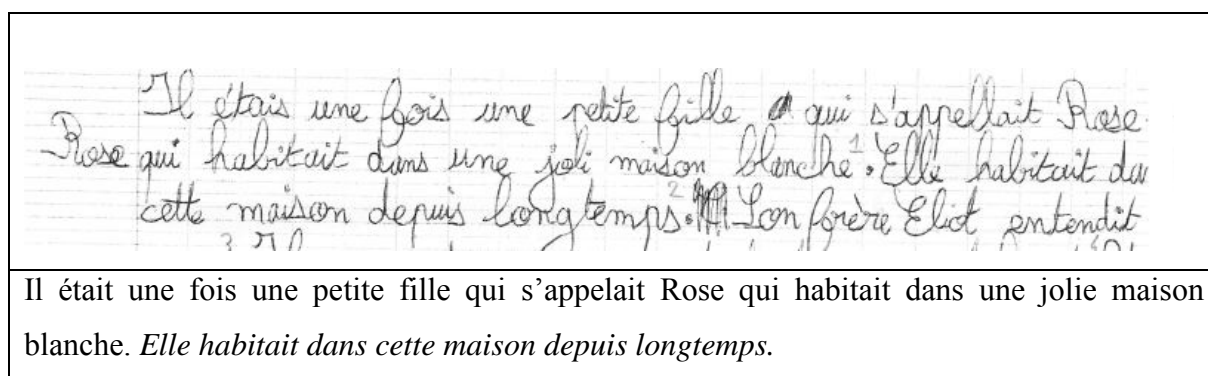 Il étais une fois une petite fille qui s'appellait Rose
Rose qui habitait dans une joli maison blanche¹. Elle habitait da
cette maison depuis longtemps.² Son frère Eliot entendit
3 Il
Il était une fois une petite fille qui s’appelait Rose qui habitait dans une jolie maison
blanche. Elle habitait dans cette maison depuis longtemps.